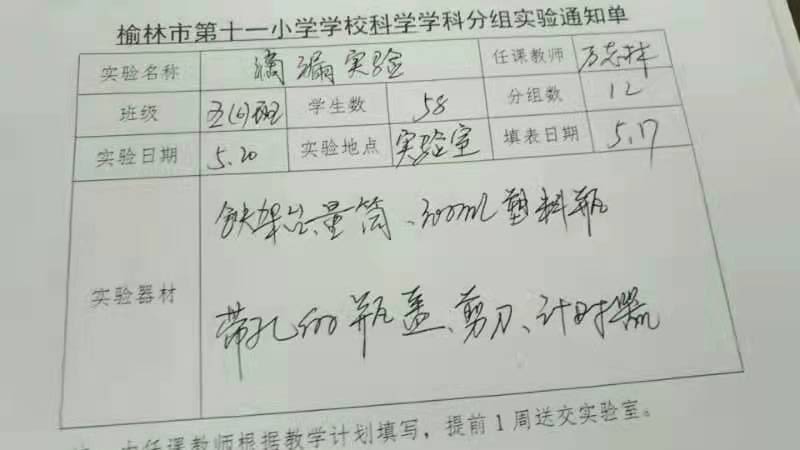 榆林市第十一小学学校科学学科分组实验通知单
实验名称 滴漏实验 任课教师
班级 五(6)班 学生数 58 分组数 12
实验日期 5.20 实验地点 实验室 填表日期 5.17
实验器材 铁架台、量筒、500ml塑料瓶
带孔的瓶盖、剪刀、计时器
任课教师根据教学计划填写，提前1周送交实验室。